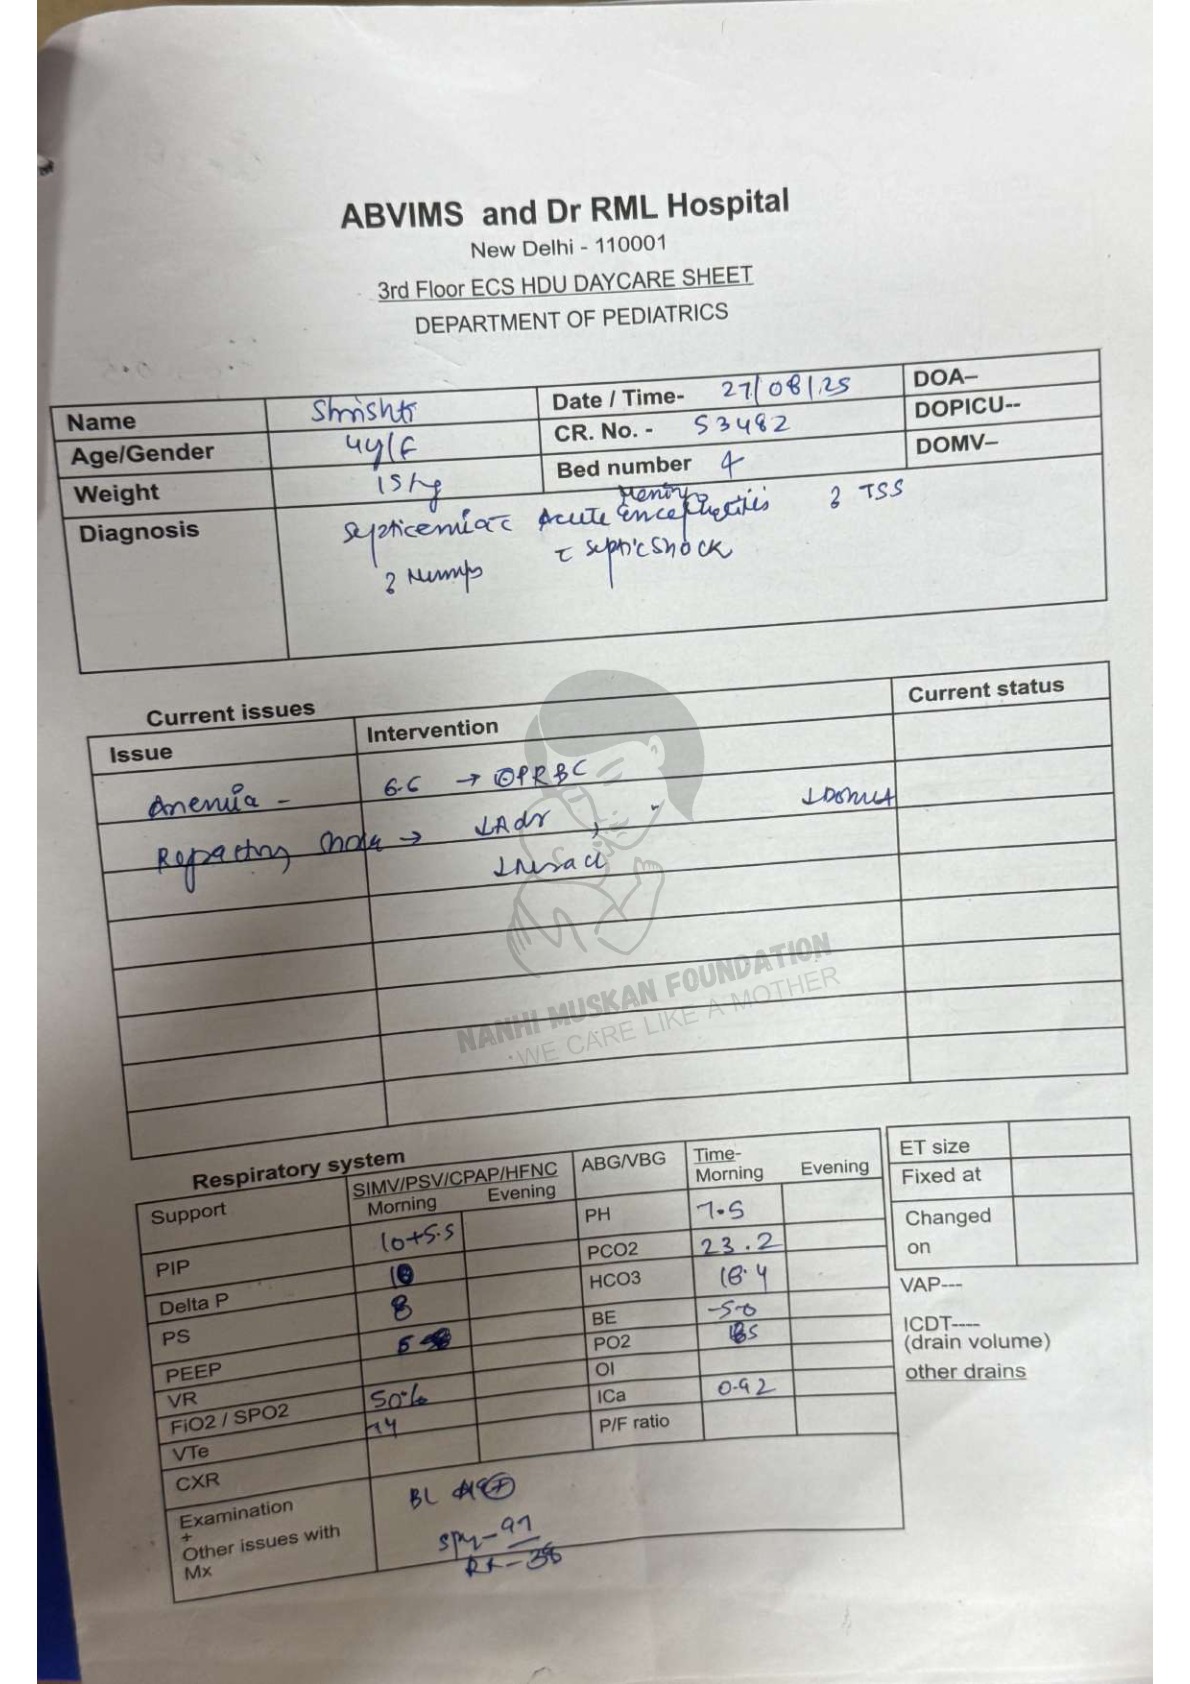 ABVIMS and Dr RML Hospital
New Delhi - 110001
3rd Floor ECS HDU DAYCARE SHEET
DEPARTMENT OF PEDIATRICS
Name Shrishti Date / Time- 27/08/25 DOA–
Age/Gender 4y/F CR. No. - 53482 DOPICU--
Weight 15kg Bed number 4 DOMV–
Diagnosis Septicemia c Acute Meningo encephalitis ? TSS
? Mumps c septic shock
Current issues
Issue Intervention Current status
Anemia - 6.6 → PRBC
shock → ↓Adr ,
Respiratory system
Support SIMV/PSV/CPAP/HFNC ABG/VBG Time-
Morning Evening Morning Evening
PIP 10+5.5 PH 7.5
Delta P 10 PCO2 23.2
PS 8 HCO3 18.4
PEEP 5 BE -5.0
VR PO2
FiO2 / SPO2 50% OI
VTe ICa 0.92
CXR P/F ratio
Examination BL
+
Other issues with
Mx
SpO2 - 97
RR - 38
ET size
Fixed at
Changed
on
VAP---
ICDT----
(drain volume)
other drains
NANHI MUSKAN FOUNDATION
WE CARE LIKE A MOTHER